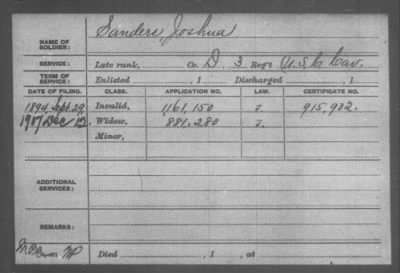 NAME OF SOLDIER: Sanders Joshua
SERVICE: Late rank, Co. D 3 Reg't U.S.C. Cav.
TERM OF SERVICE: Enlisted , 1 Discharged , 1
DATE OF FILING. CLASS. APPLICATION NO. LAW. CERTIFICATE NO.
1894 Sept. 29 Invalid, 1,161,150 J. 915,902.
1907 Dec 12. Widow, 881,280 J.
Minor,
ADDITIONAL SERVICES:
REMARKS:
Died , 1 , at